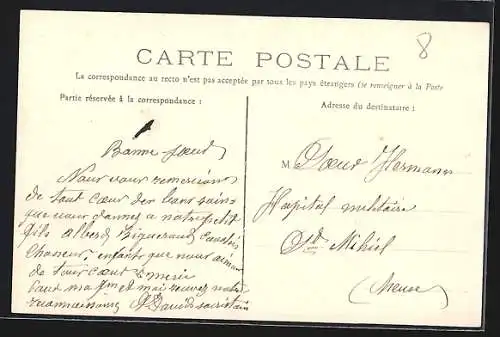 8
CARTE POSTALE
La correspondance au recto n'est pas acceptée par tous les pays étrangers (se renseigner à la Poste
Partie réservée à la correspondance :
Bonne Sœur
Nous vous remercions
de tout cœur des bons soins
que vous donnez a notre petit
fils Albert
enfants que nous aimons
de tout cœur
et moi recevez notre
sacristain
Adresse du destinataire :
M Sœur Hermann
Hopital militaire
St Mihiel
(Meuse)